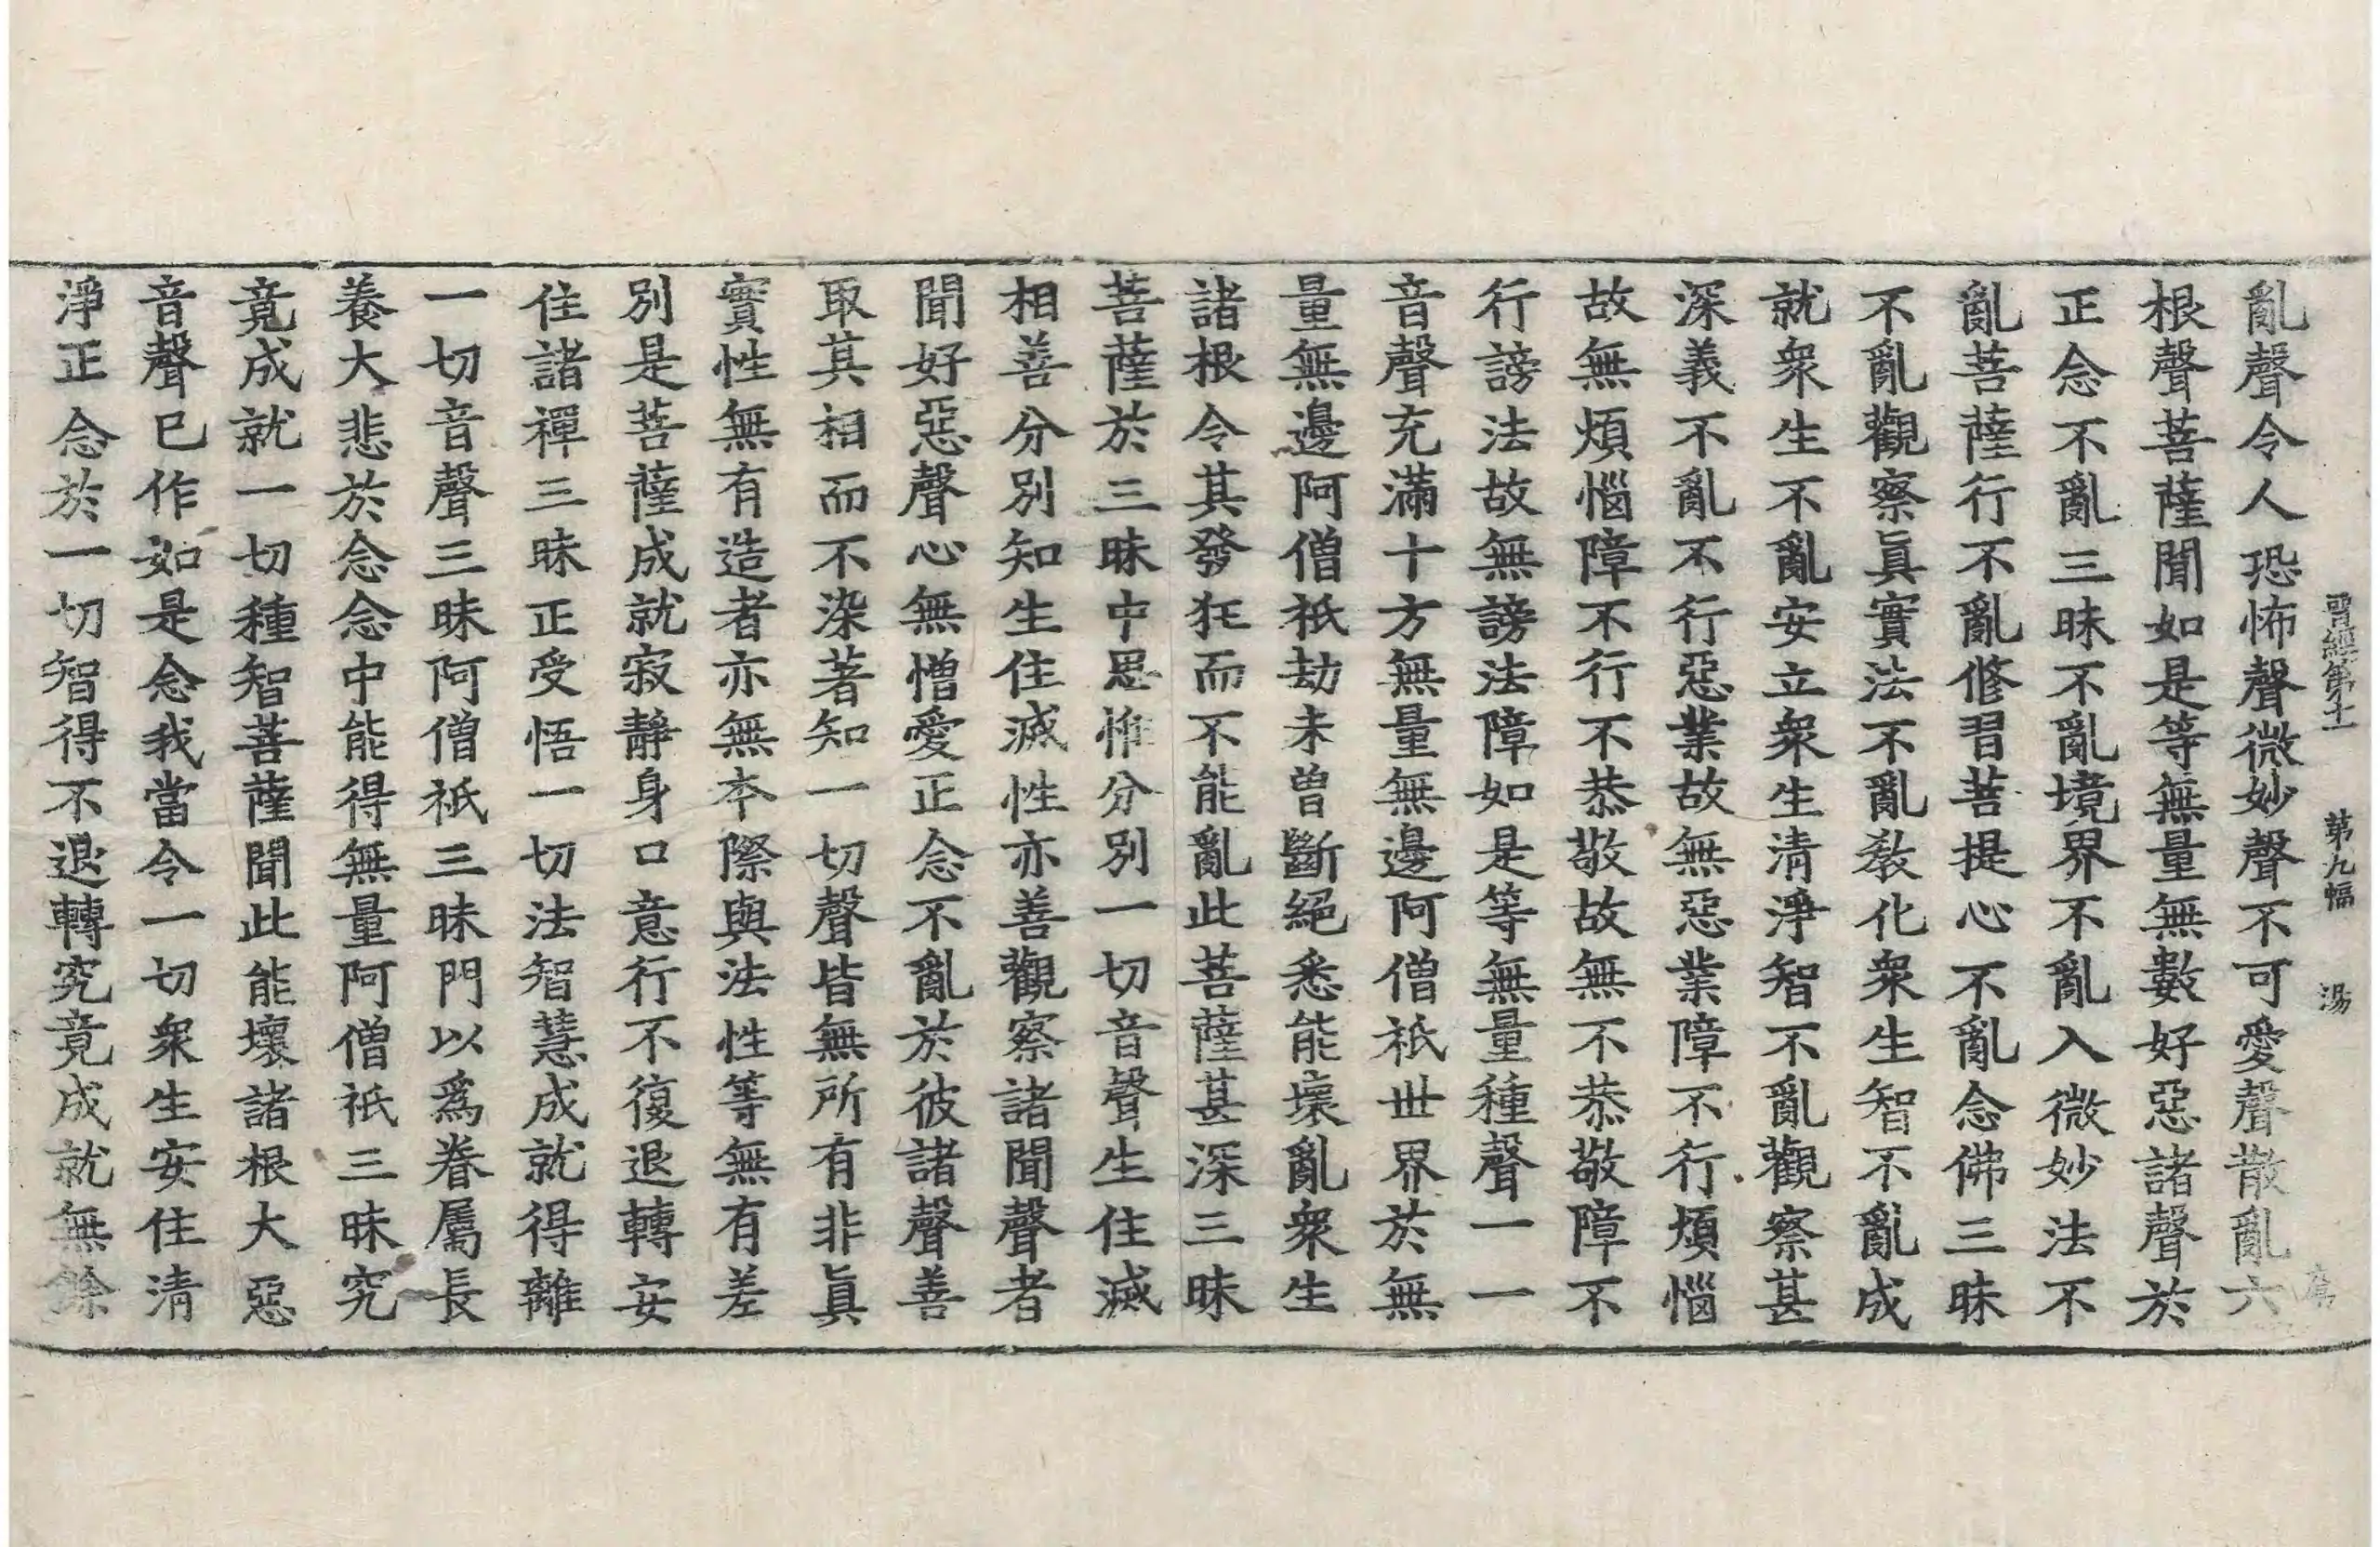 晋經第十一 第九幅 湯
亂聲令人恐怖聲微妙聲不可愛聲散亂六
根聲菩薩聞如是等無量無數好惡諸聲於
正念不亂三昧不亂境界不亂入微妙法不
亂菩薩行不亂修習菩提心不亂念佛三昧
不亂觀察眞實法不亂教化衆生智不亂成
就衆生不亂安立衆生清淨智不亂觀察甚
深義不亂不行惡業故無惡業障不行煩惱
故無煩惱障不行不恭敬故無不恭敬障不
行謗法故無謗法障如是等無量種聲一一
音聲充滿十方無量無邊阿僧祇世界於無
量無邊阿僧祇劫未曽斷絕悉能壞亂衆生
諸根令其發狂而不能亂此菩薩甚深三昧
菩薩於三昧中思惟分別一切音聲生住滅
相善分別知生住滅性亦善觀察諸聞聲者
聞好惡聲心無憎愛正念不亂於彼諸聲善
取其相而不染著知一切聲皆無所有非眞
實性無有造者亦無本際與法性等無有差
別是菩薩成就寂靜身口意行不復退轉安
住諸禪三昧正受悟一切法智慧成就得離
一切音聲三昧阿僧祇三昧門以爲眷屬長
養大悲於念念中能得無量阿僧祇三昧究
竟成就一切種智菩薩聞此能壞諸根大惡
音聲已作如是念我當令一切衆生安住清
淨正念於一切智得不退轉究竟成就無餘